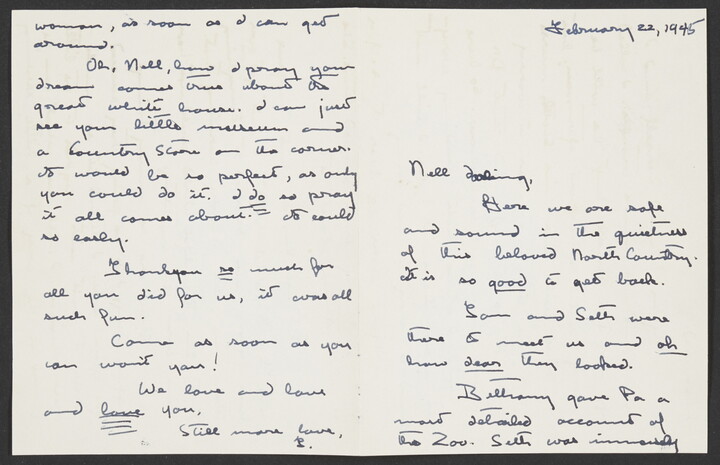 February 22, 1945
Nell darling,
Here we are safe
and sound in the quietness
of this beloved North Country.
It is so good to get back.
Tom and Seth were
there to meet us and oh
how dear they looked.
Bethany gave Pa a
most detailed account of
the Zoo. Seth was immensely
woman, as soon as I can get
around.
Oh, Nell, how I pray your
dream comes true about the
great white house. I can just
see your little museum and
a Country Store on the corner.
It would be so perfect, as only
you could do it. I do so pray
it all comes about. It could
so easily.
Thankyou so much for
all you did for us, it was all
such fun.
Come as soon as you
can won't you!
We love and love
and love you,
Still more love,